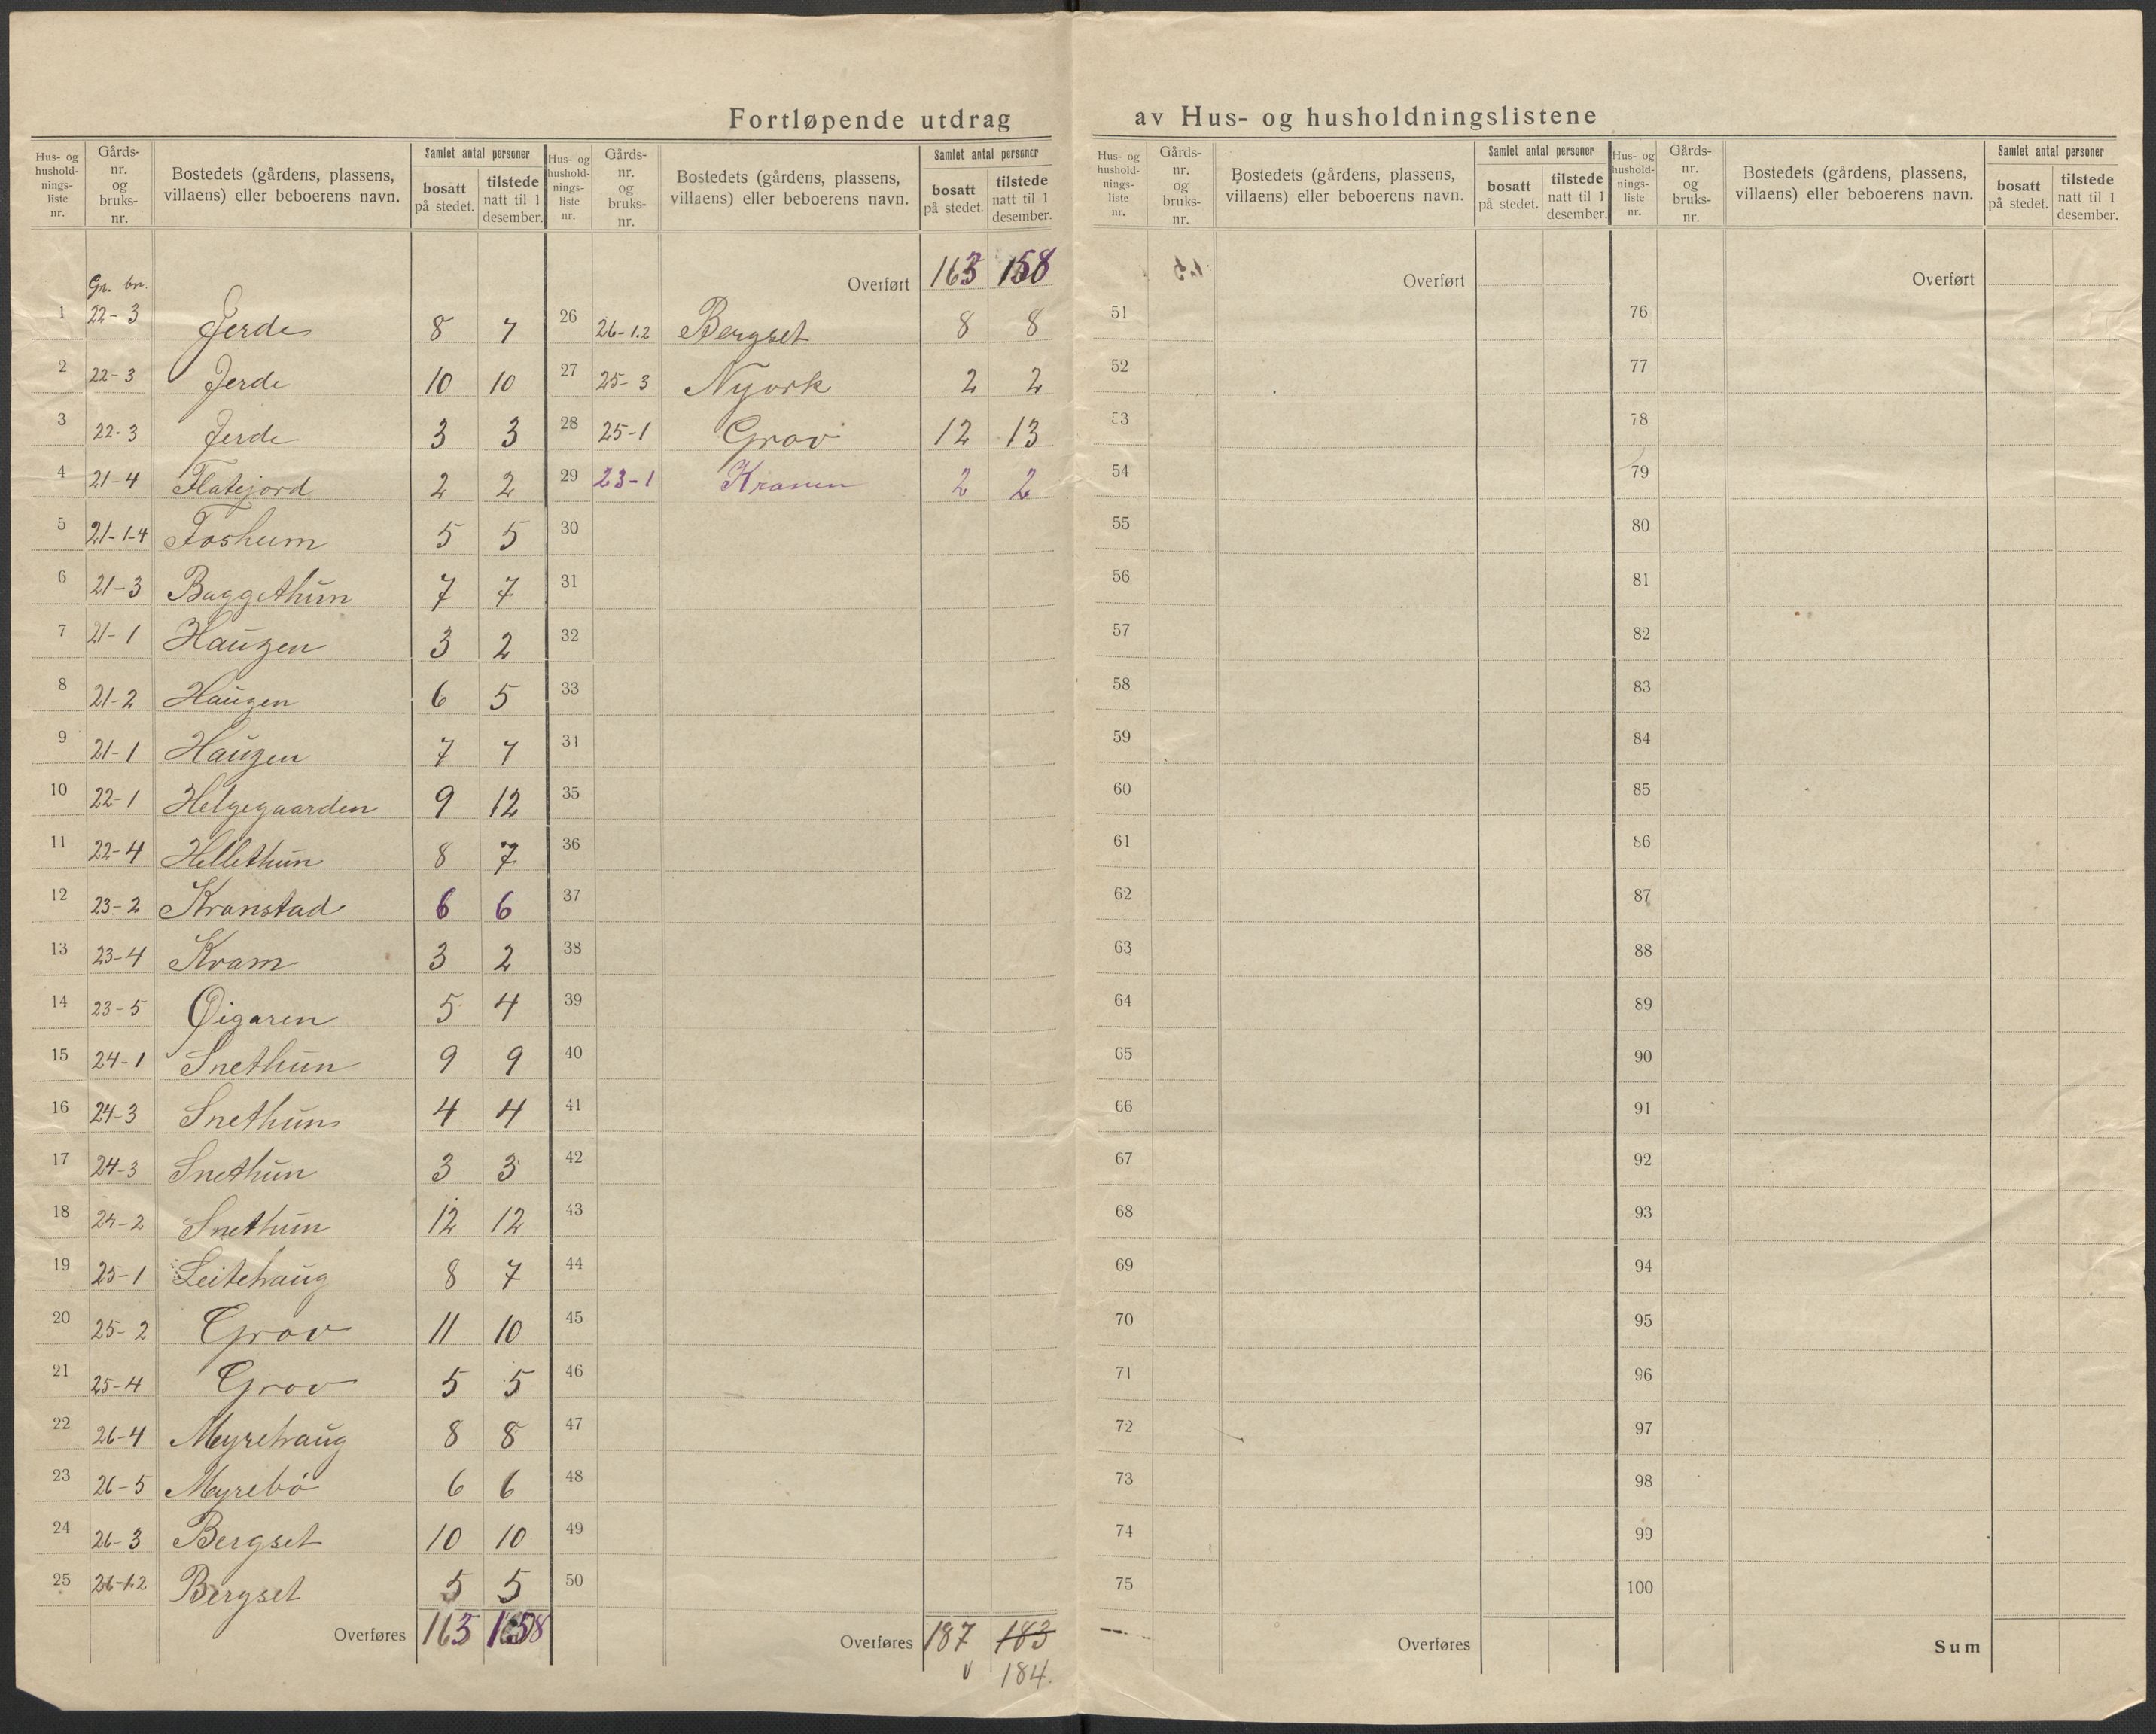 Fortløpende utdrag av Hus- og husholdningslistene
Hus- og hushold-nings-liste nr. Gårds-nr. og bruks-nr. Bostedets (gårdens, plassens, villaens) eller beboerens navn. Samlet antal personer bosatt på stedet. tilstede natt til 1 desember.
Hus- og hushold-nings-liste nr. Gårds-nr. og bruks-nr. Bostedets (gårdens, plassens, villaens) eller beboerens navn. Samlet antal personer bosatt på stedet. tilstede natt til 1 desember.
Hus- og hushold-nings-liste nr. Gårds-nr. og bruks-nr. Bostedets (gårdens, plassens, villaens) eller beboerens navn. Samlet antal personer bosatt på stedet. tilstede natt til 1 desember.
Hus- og hushold-nings-liste nr. Gårds-nr. og bruks-nr. Bostedets (gårdens, plassens, villaens) eller beboerens navn. Samlet antal personer bosatt på stedet. tilstede natt til 1 desember.
Gn. bn.
1 22-3 Jerde 8 7
2 22-3 Jerde 10 10
3 22-3 Jerde 3 3
4 21-4 Flatejord 2 2
5 21-1-4 Foshum 5 5
6 21-3 Baggethun 7 7
7 21-1 Haugen 3 2
8 21-2 Haugen 6 5
9 21-1 Haugen 7 7
10 22-1 Helgegaarden 9 12
11 22-4 Hellethun 8 7
12 23-2 Kranstad 6 6
13 23-4 Kvam 3 2
14 23-5 Øigaren 5 4
15 24-1 Snethun 9 9
16 24-3 Snethun 4 4
17 24-3 Snethun 3 3
18 24-2 Snethun 12 12
19 25-1 Leitehaug 8 7
20 25-2 Grov 11 10
21 25-4 Grov 5 5
22 26-4 Myrehaug 8 8
23 26-5 Myrebø 6 6
24 26-3 Bergset 10 10
25 26-1.2 Bergset 5 5
Overføres 163 158
Overført 163 158
26 26-1.2 Bergset 8 8
27 25-3 Nyork 2 2
28 25-1 Grov 12 13
29 23-1 2 2
30
31
32
33
31
35
36
37
38
39
40
41
42
43
44
45
46
47
48
49
50
Overføres 187 183
184.
Overført
51
52
53
54
55
56
57
58
59
60
61
62
63
64
65
66
67
68
69
70
71
72
73
74
75
Overføres
Overført
76
77
78
79
80
81
82
83
84
85
86
87
88
89
90
91
92
93
94
95
96
97
98
99
100
Sum